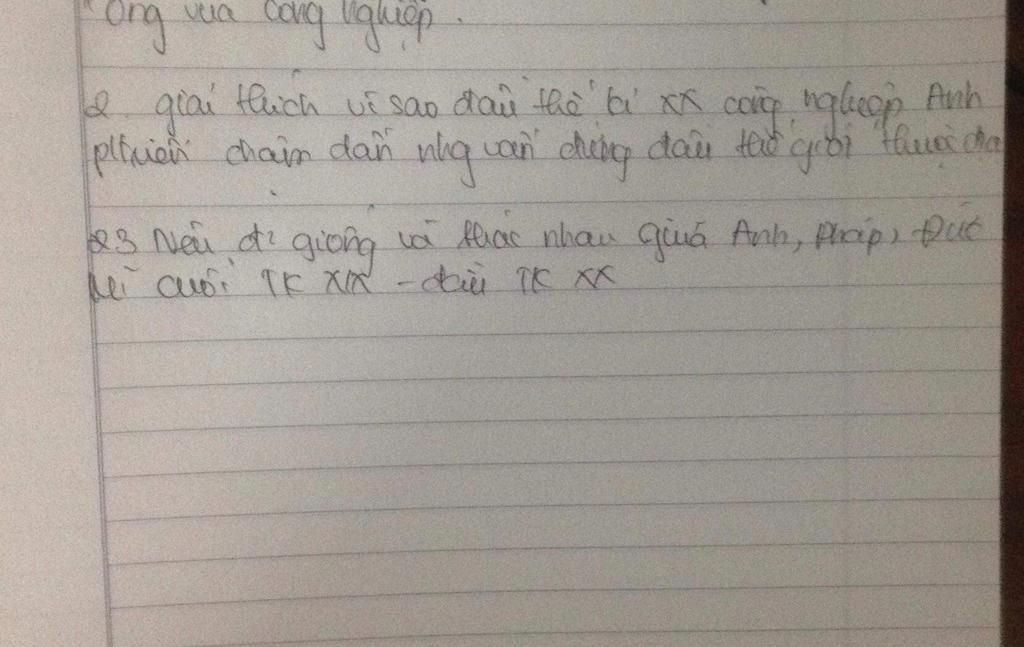 "Ông vua công nghiệp.
2. giải thích vì sao đầu thế kỉ XX công nghiệp Anh
phát triển chậm dần nhg vẫn đứng đầu thế giới thuộc địa
23 Nêu đ² giống và khác nhau giữa Anh, Pháp, Đức
cuối TK XIX - đầu TK XX